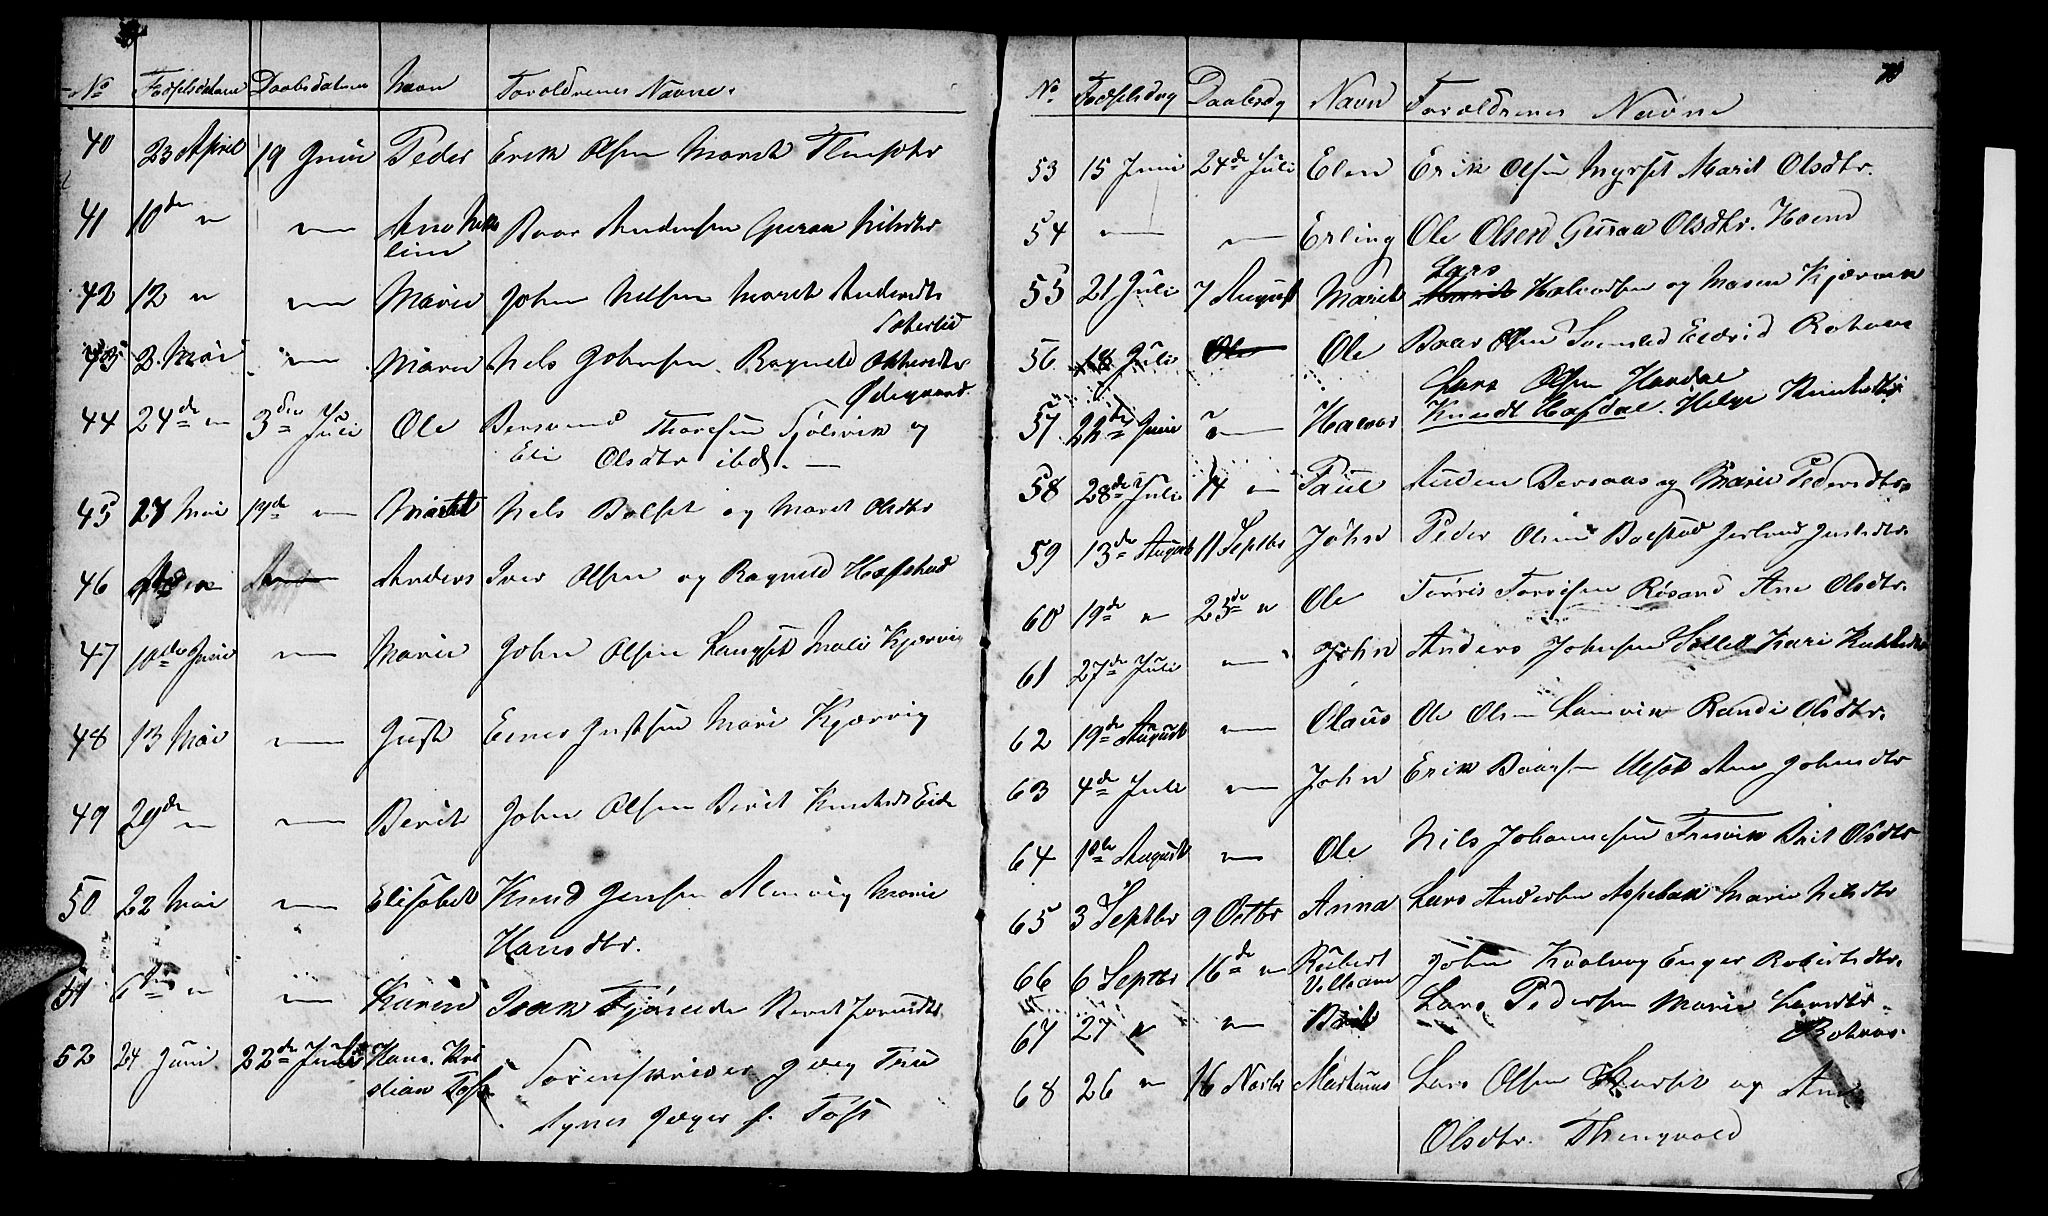 No Fødselsdatum Daabsdatum Navn Forældrenes Navne.
40 23 April 19 Juni Peder Erik Olsen Marit
41 10de " — Ane Niko
line Baar Andersen Guraa Nilsdtr
42 12 " — Marie John Nilsen Marit Andersdtr
43 2. Mai — Marie Nils Johnsen Ragnild
Ødegaard.
44 24de " 3die Juli Ole Bersvend Thoresen Fjølsvik og
Eli Olsdtr ibd. —
45 27 Mai 19de — Marit Nils Bolset og Marit Olsdtr
46 Anders Iver Olsen og Ragnild Hafstad
47 10de Juni — Marie John Olsen Langset Mali Kjørvig
48 13 Mai — Just Einer Justsen Mari Kjørvig
49 29de " — Berit John Olsen Berit Knudsdtr Eide
50 22 Mai — Elisabet Knud Jensen Alnvig Marie
Hansdtr.
51 6te " — Karen Isak Berit
52 24 Juni 22de Juli Hans. Kri
stian Toft Sorenskriver Greg Friis
Agnes Jæger f. Toft
70
No Fødselsdag Daabsdag Navn Forældrenes Navne
53 15 Juni 24de Juli Elen Erik Olsen Myrset Marit Olsdtr.
54 — — Erling Ole Olsen Guraa Olsdtr. Hoem
Lars
55 21 Juli 7 August Marit Marit Halvorsen og Masen
56 18 Juli Ole Ole Baar Olsen Eldrid
Lars Olsen Hardal
57 22de Juni 7 — Halvor Knudt Hasdal. Helge Knudsdtr
58 28de Juli 14 — Paul Auden Bersaas og Marie Pedersdtr.
59 13de August 11 Septbr John Peder Olsen Bolstad
60 19de " 25de " Ole Torris Torrisen Røsand Ane Olsdtr.
61 27de Juli — John Anders Johnsen Kari
62 19de August — Olaus Ole Olsen Lamvik Randi Olsdtr.
63 4de Juli — John Erik Baarsen Ulset Ane Johnsdtr
64 10de August — Ole Nils Johannesen Brit Olsdtr
65 3 Septbr 9 Octbr Anna Lars Andersen Aspebak Marie Nilsdtr
66 6 Septbr 16de " Robert
Villiam John Kvalvog Enger Robertsdtr.
67 27 " — Brit Lars Pedersen Marie Larsdtr.
68 26 " 16 Novbr Martinus Lars Olsen og Ane
Olsdtr. Thingvold